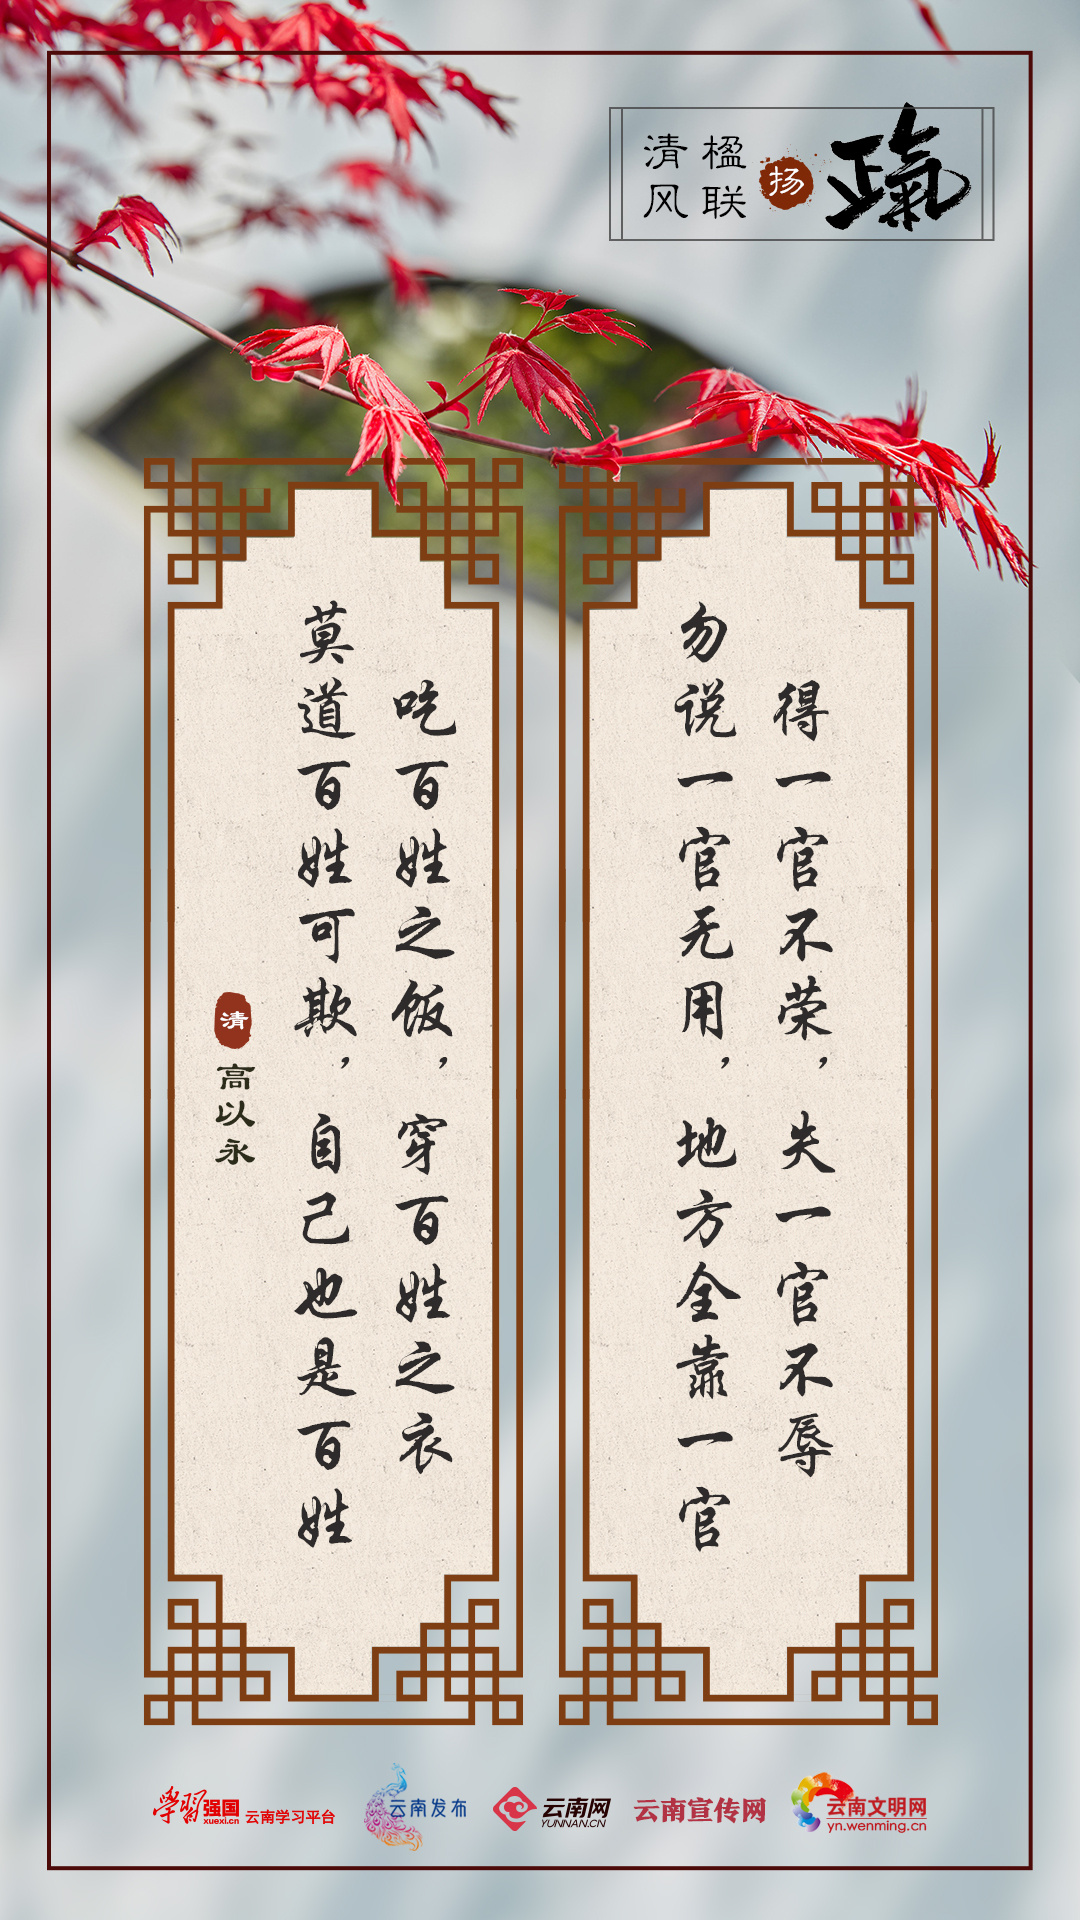 清风
楹联
扬
正氣
得一官不荣，失一官不辱
勿说一官无用，地方全靠一官
吃百姓之饭，穿百姓之衣
莫道百姓可欺，自己也是百姓
清
高以永
學習强国
xuexi.cn
云南学习平台
云南发布
云南网
YUNNAN.CN
云南宣传网
云南文明网
yn.wenming.cn